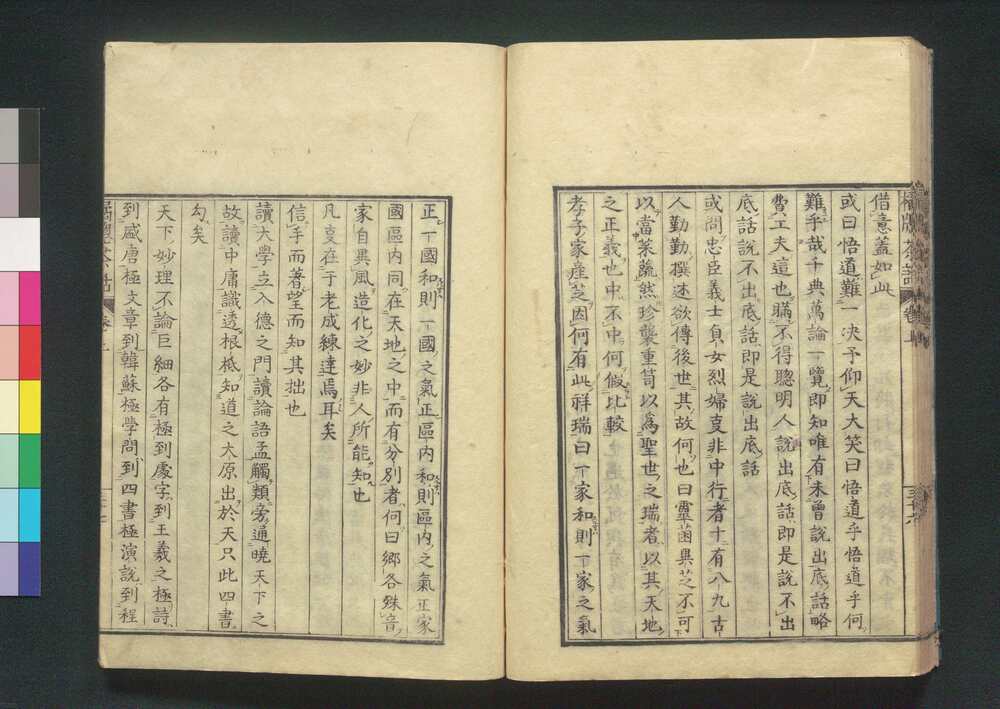 借意蓋如此
或曰悟道難一决予仰天大笑曰悟道乎悟道乎何
難乎哉千典萬論一覽即知唯有未曾說出底話略
費工夫這也瞞不得聰明人說出底話即是說不出
底話說不出底話即是說出底話
或問忠臣義士貞女烈婦事非中行者十有八九古
人勤勤撰述欲傳後世其故何也曰靈菌異芝不可
以當菜蔬然珍襲重笥以爲聖世之瑞者以其天地
之正義也中不中何假比較
孝子家産芝因何有此祥瑞曰一家和則一家之氣
正一國和則一國之氣正區內和則區內之氣正家
國區內同在天地之中而有分別者何曰鄉各殊音
家自異風造化之妙非人所能知也
凡事在于老成練達焉耳矣
信手而著望而知其拙也
讀大學立入德之門讀論語孟觸類旁通曉天下之
故讀中庸識透根柢知道之大原出於天只此四書
勾矣
天下妙理不論巨細各有極到處字到王羲之極詩
到盛唐極文章到韓蘇極學問到四書極演說到程